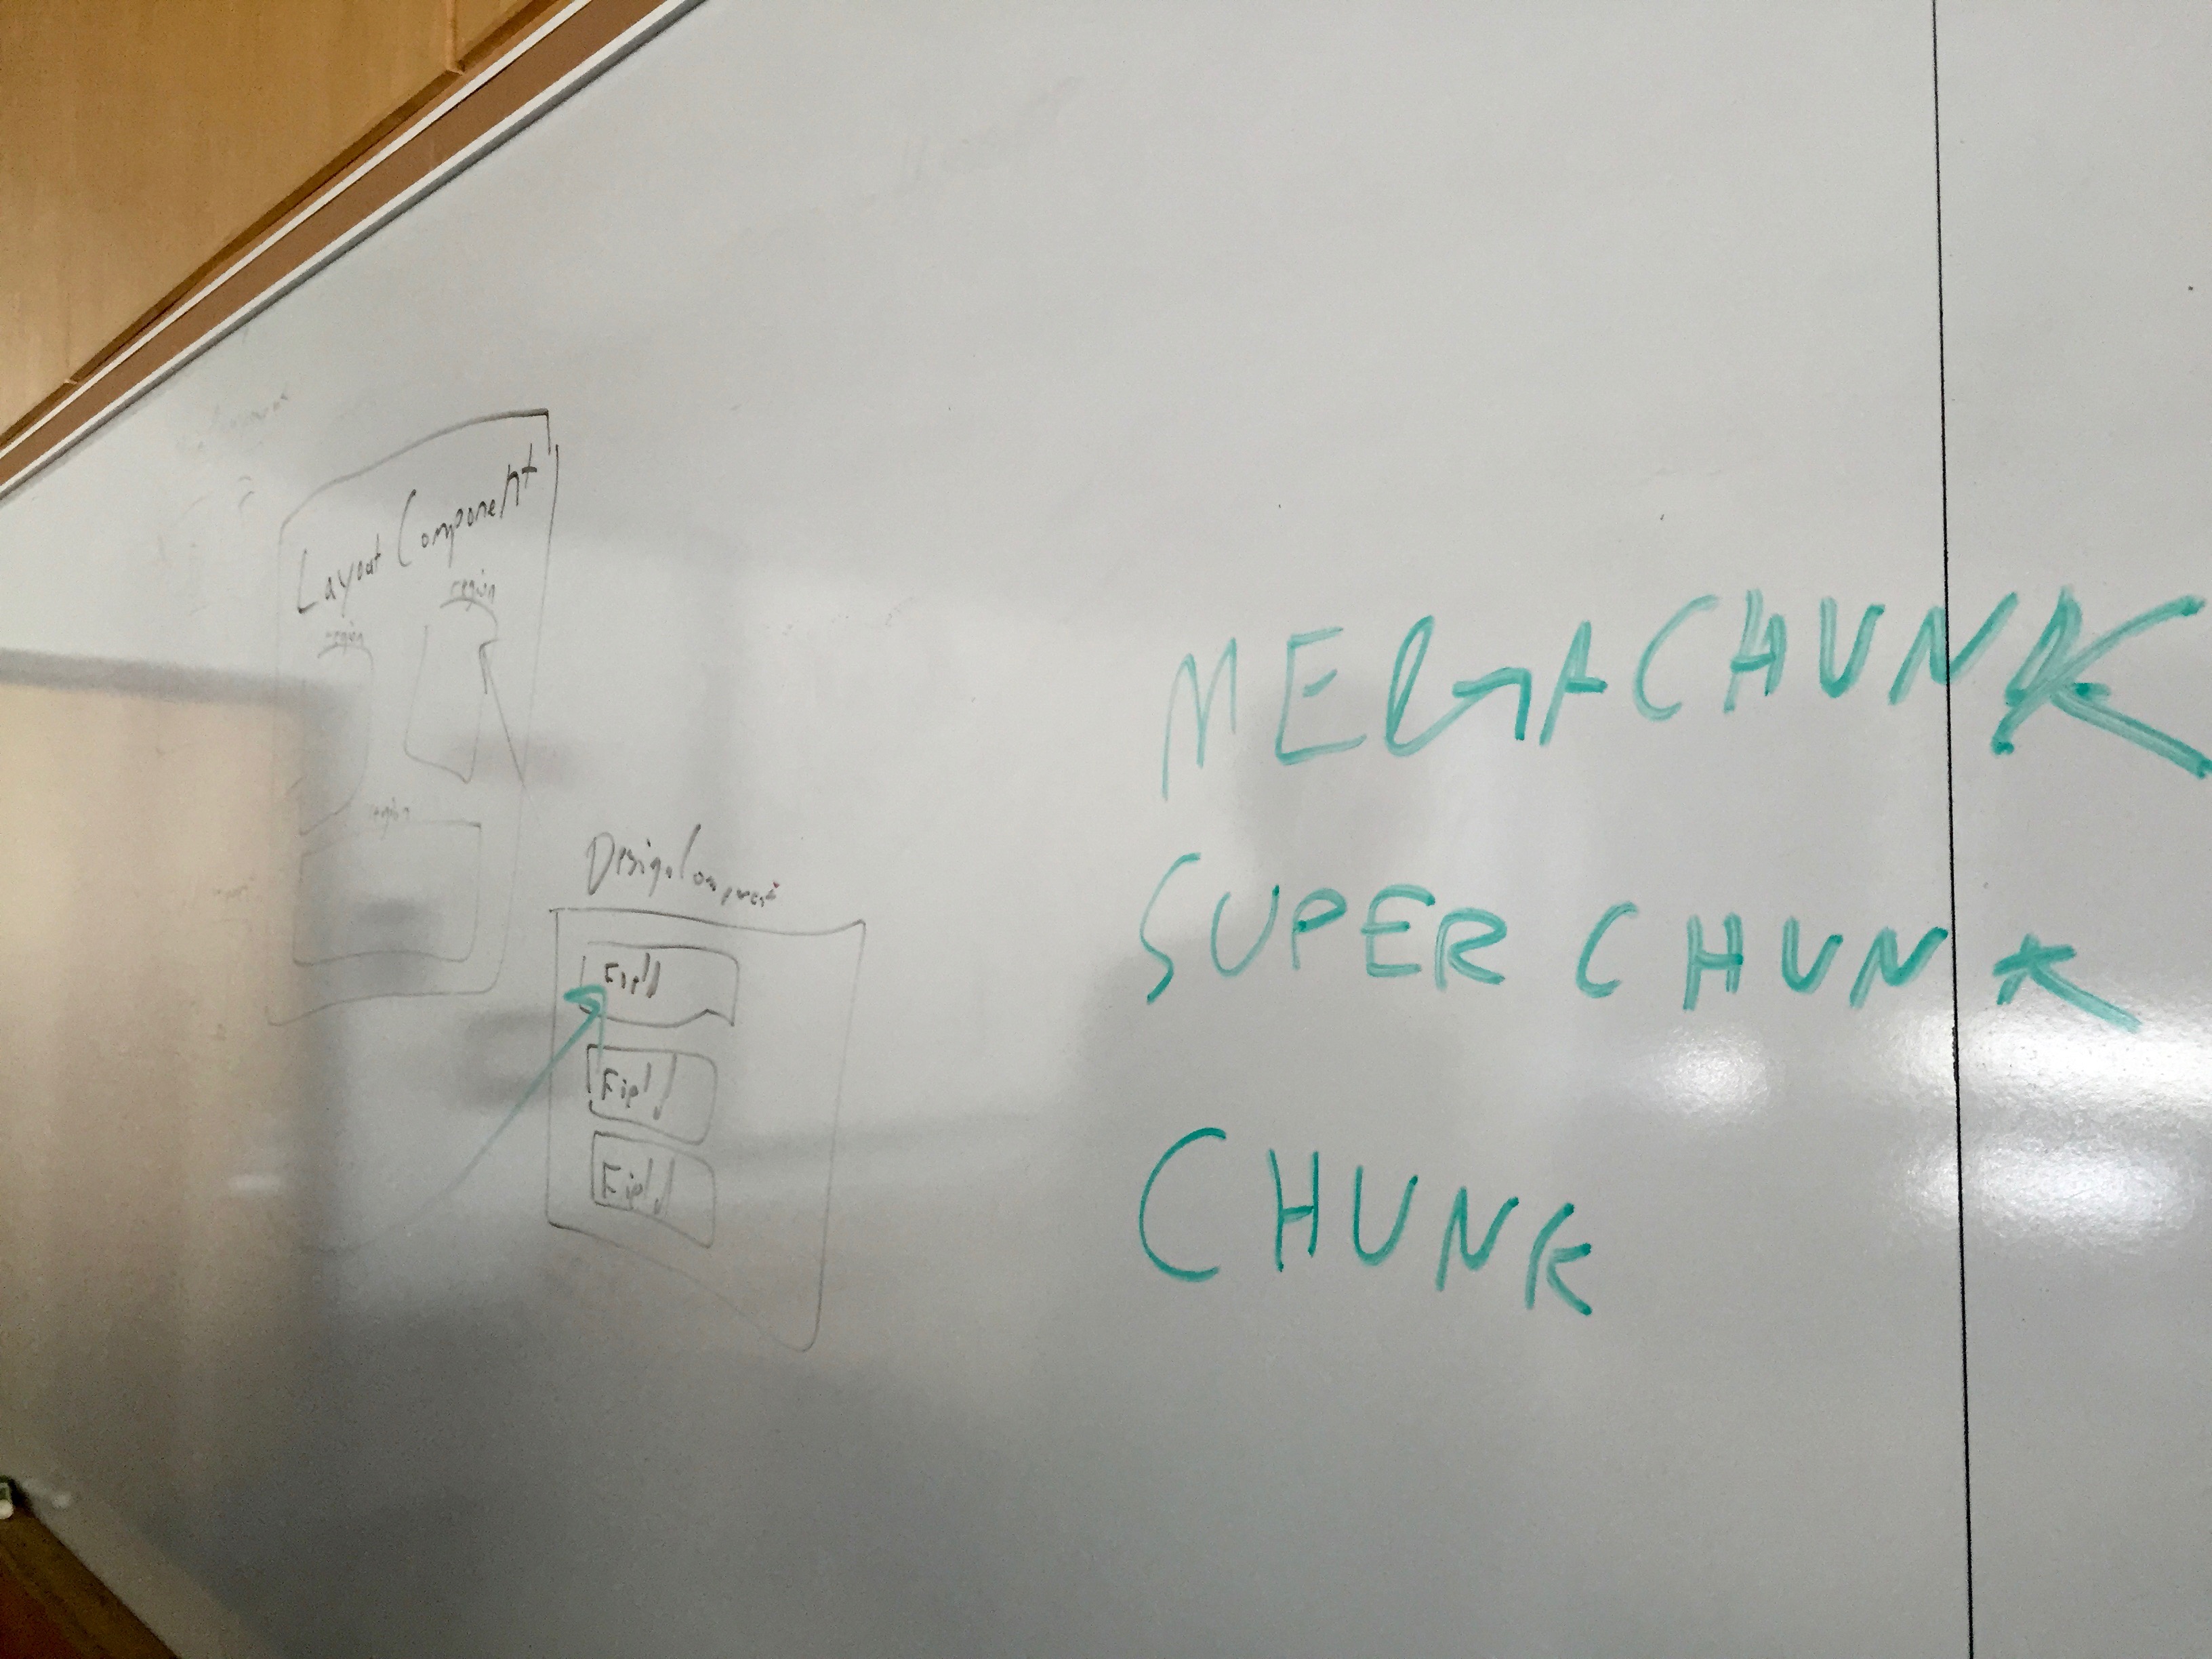 Layout Component
region
region
region
Design Component
Field
Field
Field
MEGACHUNK
SUPER CHUNK
CHUNK